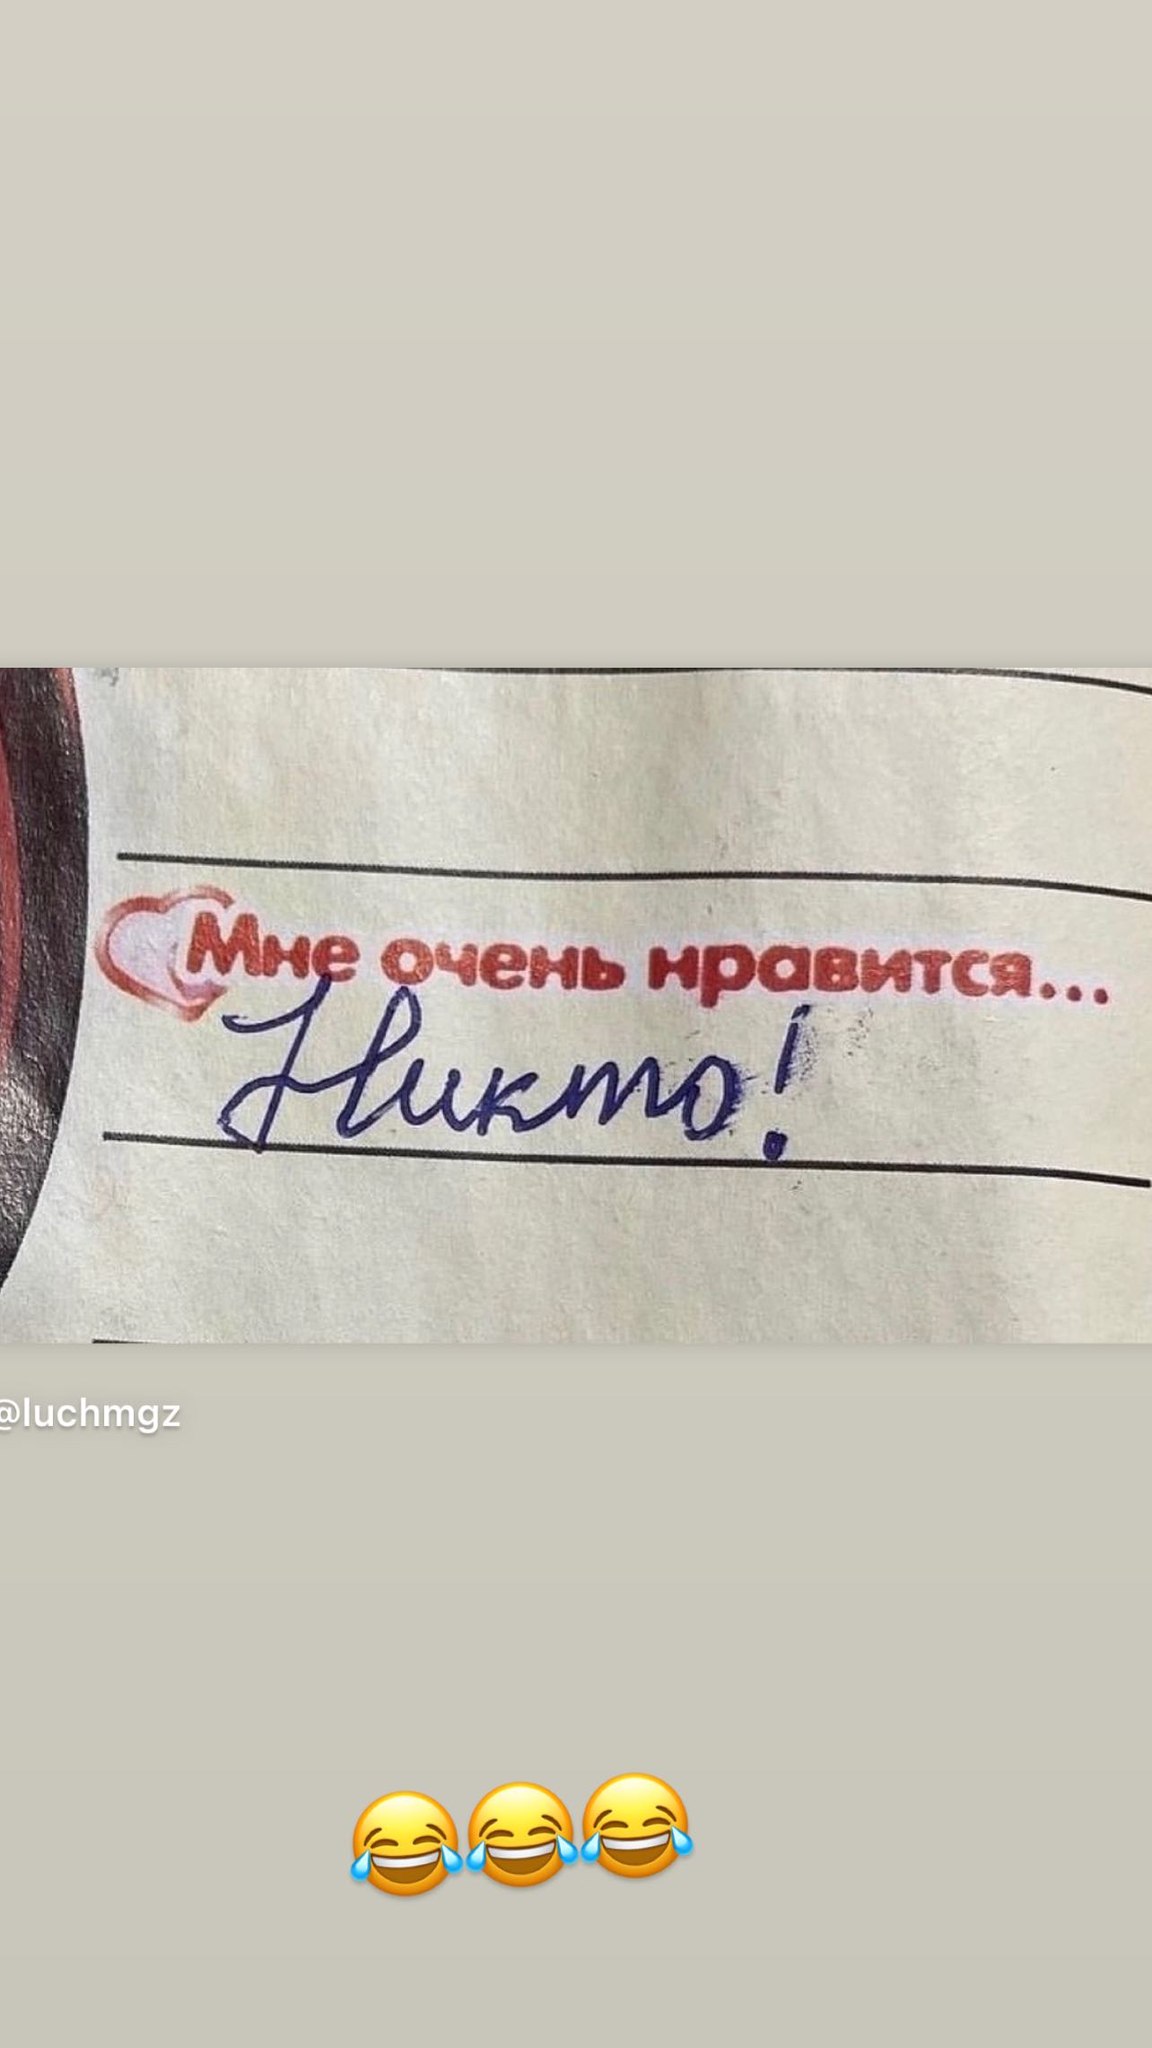 Мне очень нравится...
Никто!
@luchmgz
😂😂😂